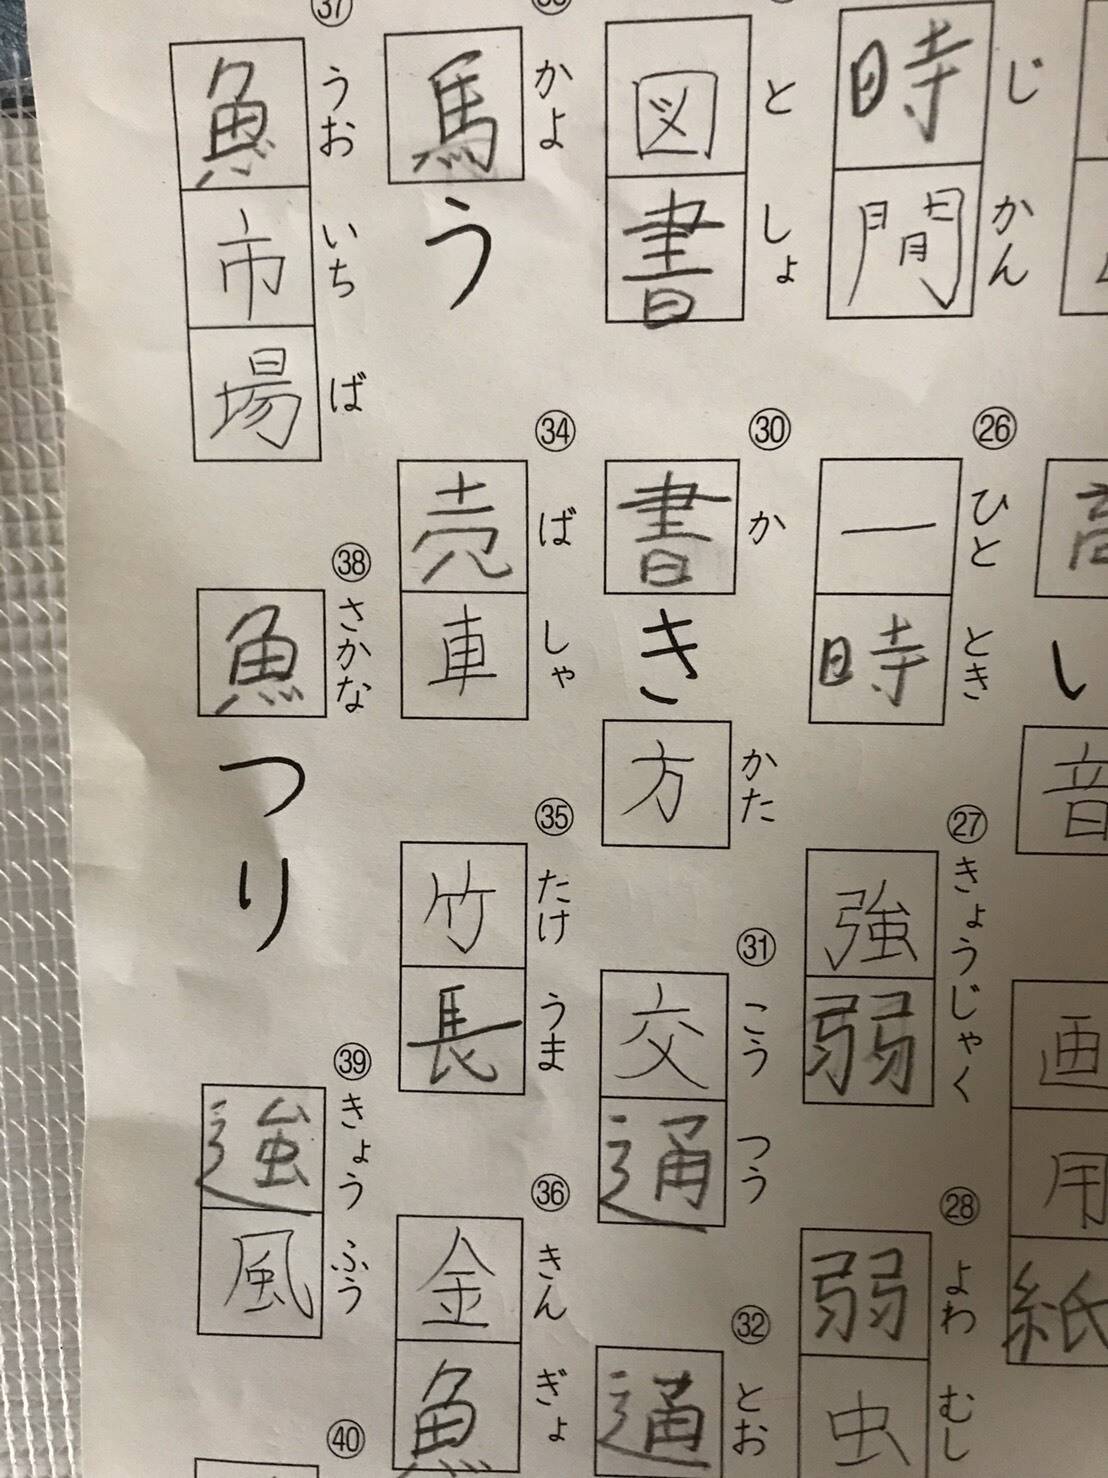 高い音
画用紙
じかん
時間
㉖ ひととき
一時
㉗ きょうじゃく
強弱
㉘ よわむし
弱虫
としょ
図書
㉚ か かた
書き方
㉛ こうつう
交通
㉜ とお
通
かよ
馬う
㉞ ばしゃ
売車
㉟ たけうま
竹長
㊱ きんぎょ
金魚
㊲ うおいちば
魚市場
㊳ さかな
魚つり
㊴ きょうふう
風
㊵